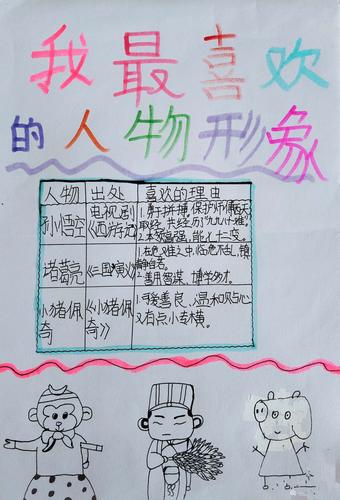 我最喜欢
的人物形象
人物 出处 喜欢的理由
孙悟空 电视剧《西游记》 1.勇于拼搏,保护师傅西天取经,共经历九九八十一难。
2.本领高强,能七十二变。
诸葛亮 《三国演义》 1.在危难之中,临危不乱,镇静自若。
2.善用智谋,博学多才。
小猪佩奇 《小猪佩奇》 1.可爱善良,温和贴心
又有点小专横。